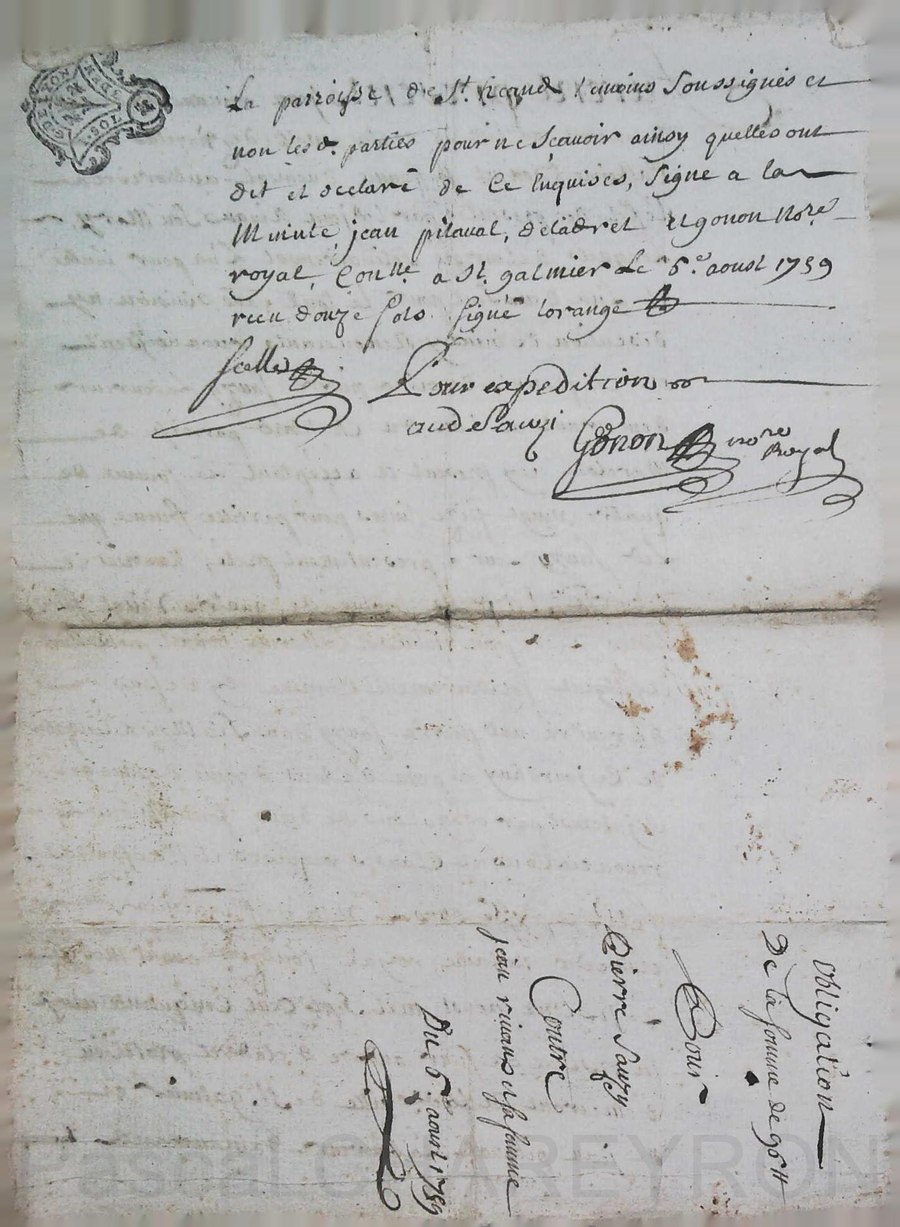 La parroisse de St. , temoins Soussignés et
non les d. parties pour ne sçavoir ainsy quelles ont
dit et declaré de Ce Enquises, Signé a la
Minute, jean pitaval, delabret et gonon Nore.
royal, Conlle. a St. galmier Le 5e. aoust 1759
reçu douze Sols. Signé Lorange
scellé
Pour expedition
aud Sauzi
Gonon nore
Royal
Obligation
De la somme de 96 tt
Pour
Pierre Sauzy
Contre
jean et sa famme
Du 5 aoust 1759
PascaL CHAREYRON